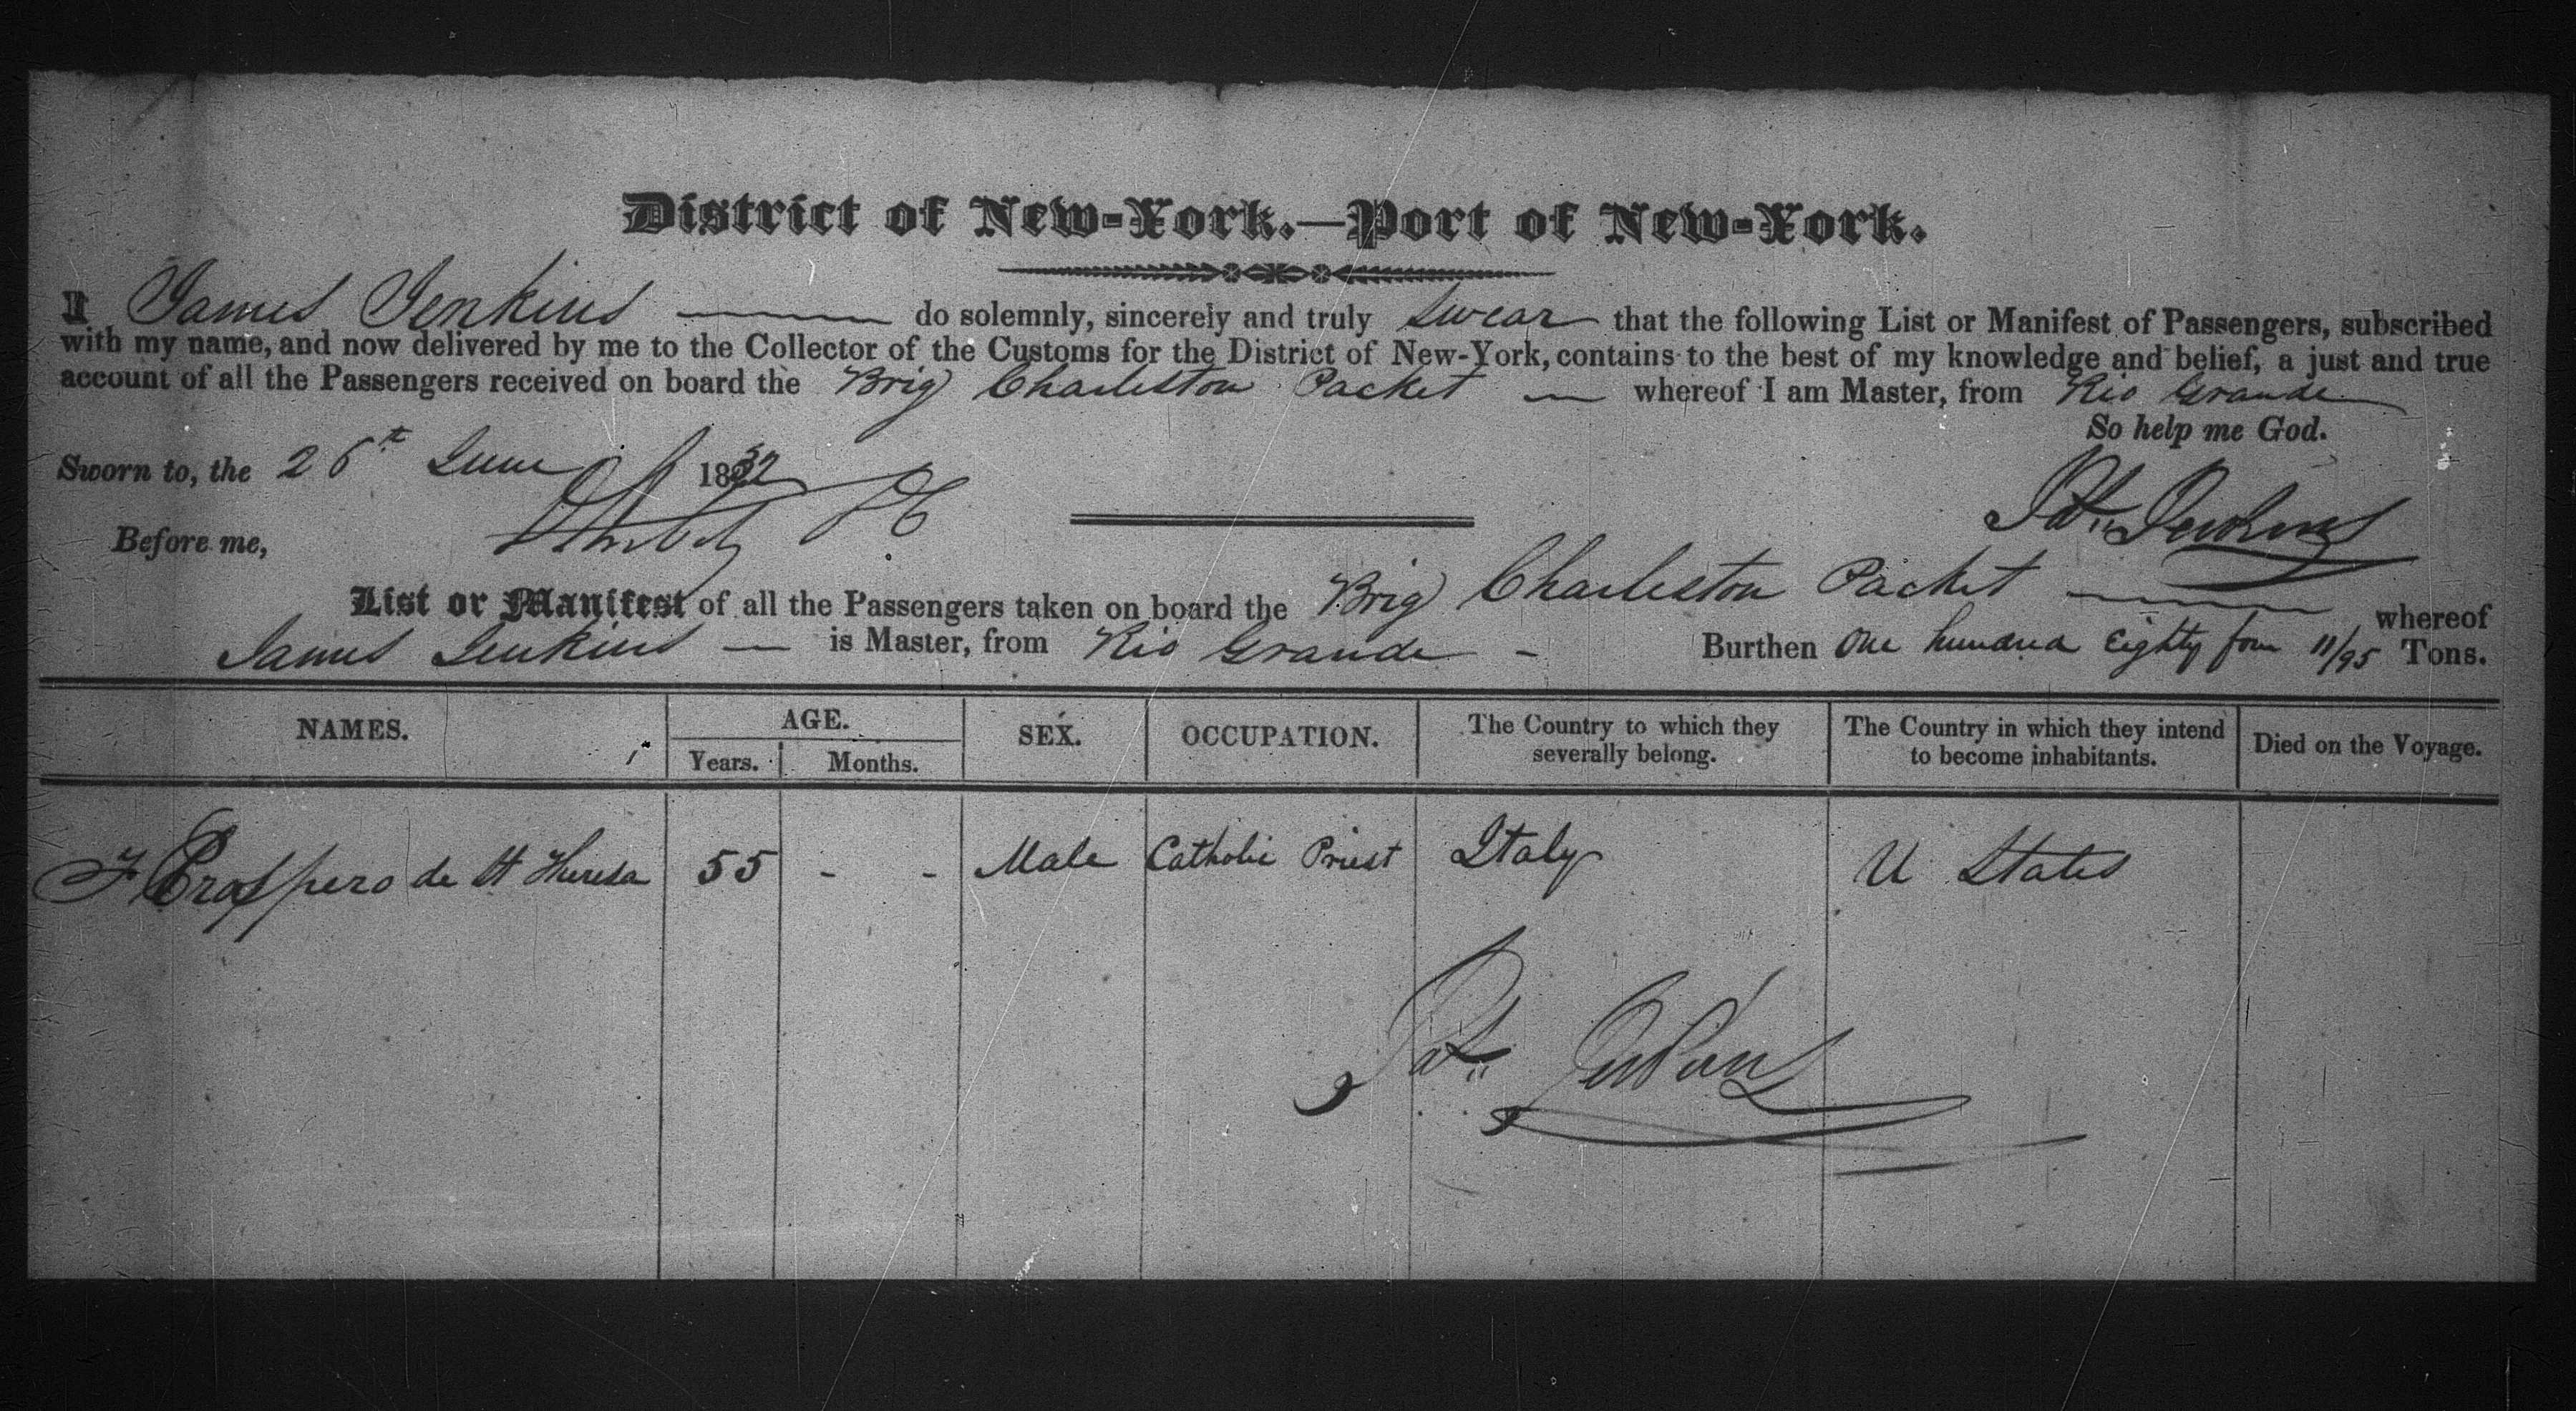 District of New-York.—Port of New-York.
I James Jenkins do solemnly, sincerely and truly swear that the following List or Manifest of Passengers, subscribed
with my name, and now delivered by me to the Collector of the Customs for the District of New-York, contains to the best of my knowledge and belief, a just and true
account of all the Passengers received on board the Brig Charleston Packet whereof I am Master, from Rio Grande
So help me God.
Sworn to, the 26th June 1832
Jas Jenkins
Before me,
List or Manifest of all the Passengers taken on board the Brig Charleston Packet whereof
James Jenkins is Master, from Rio Grande - Burthen One hundred Eighty four 11/95 Tons.
NAMES. AGE. SEX. OCCUPATION. The Country to which they severally belong. The Country in which they intend to become inhabitants. Died on the Voyage.
Years. Months.
F Prospero de St Theresa 55 - - Male Catholic Priest Italy U States
Jas Jenkins